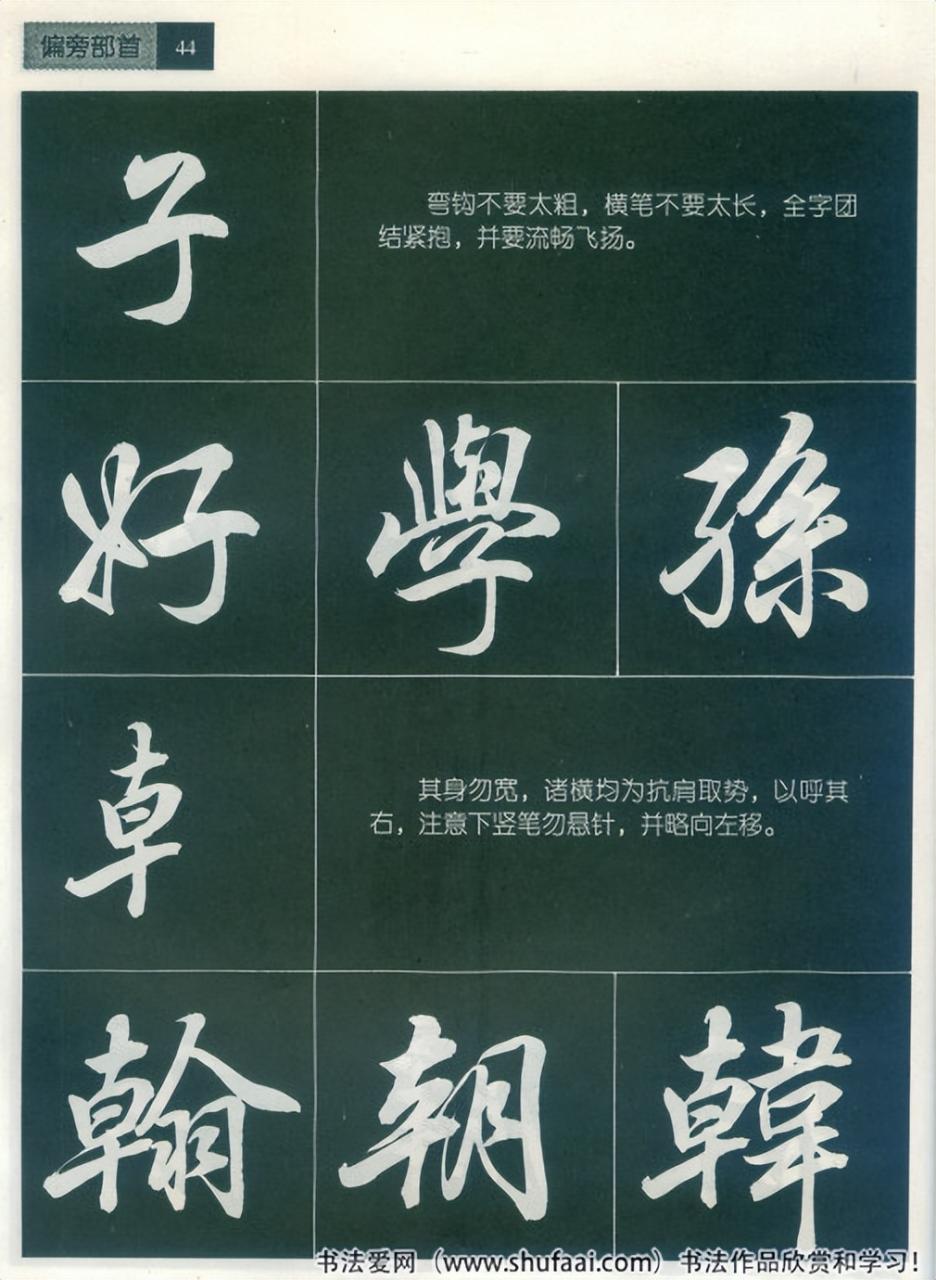 偏旁部首 44
子
弯钩不要太粗，横笔不要太长，全字团
结紧抱，并要流畅飞扬。
好 學 孫
𠦝
其身勿宽，诸横均为抗肩取势，以呼其
右，注意下竖笔勿悬针，并略向左移。
翰 朝 韓
书法爱网（www.shufaai.com）书法作品欣赏和学习！